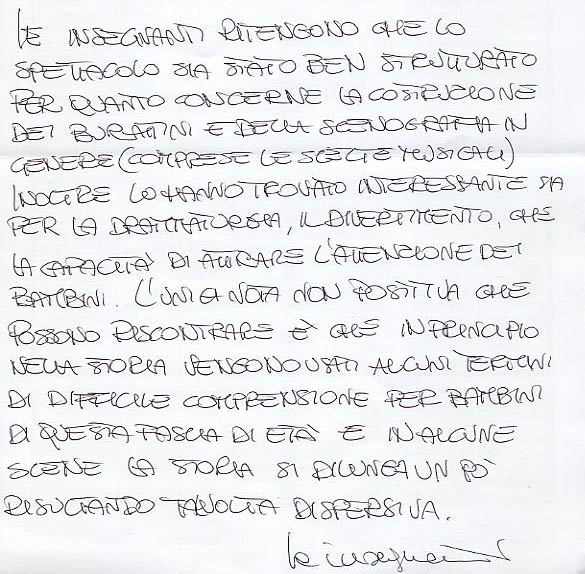 LE INSEGNANTI RITENGONO CHE LO
SPETTACOLO SIA STATO BEN STRUTTURATO
PER QUANTO CONCERNE LA COSTRUZIONE
DEI BURATTINI E DELLA SCENOGRAFIA IN
GENERE (COMPRESE LE SCELTE MUSICALI)
INOLTRE LO HANNO TROVATO INTERESSANTE SIA
PER LA DRAMMATURGIA, IL DIVERTIMENTO, CHE
LA CAPACITÀ DI ATTIRARE L'ATTENZIONE DEI
BAMBINI. L'UNICA NOTA NON POSITIVA CHE
POSSONO RISCONTRARE È CHE IN PRINCIPIO
NELLA STORIA VENGONO USATI ALCUNI TERMINI
DI DIFFICILE COMPRENSIONE PER BAMBINI
DI QUESTA FASCIA DI ETÀ E IN ALCUNE
SCENE LA STORIA SI DILUNGA UN PÒ
RISULTANDO TALVOLTA DISPERSIVA.
le insegnanti